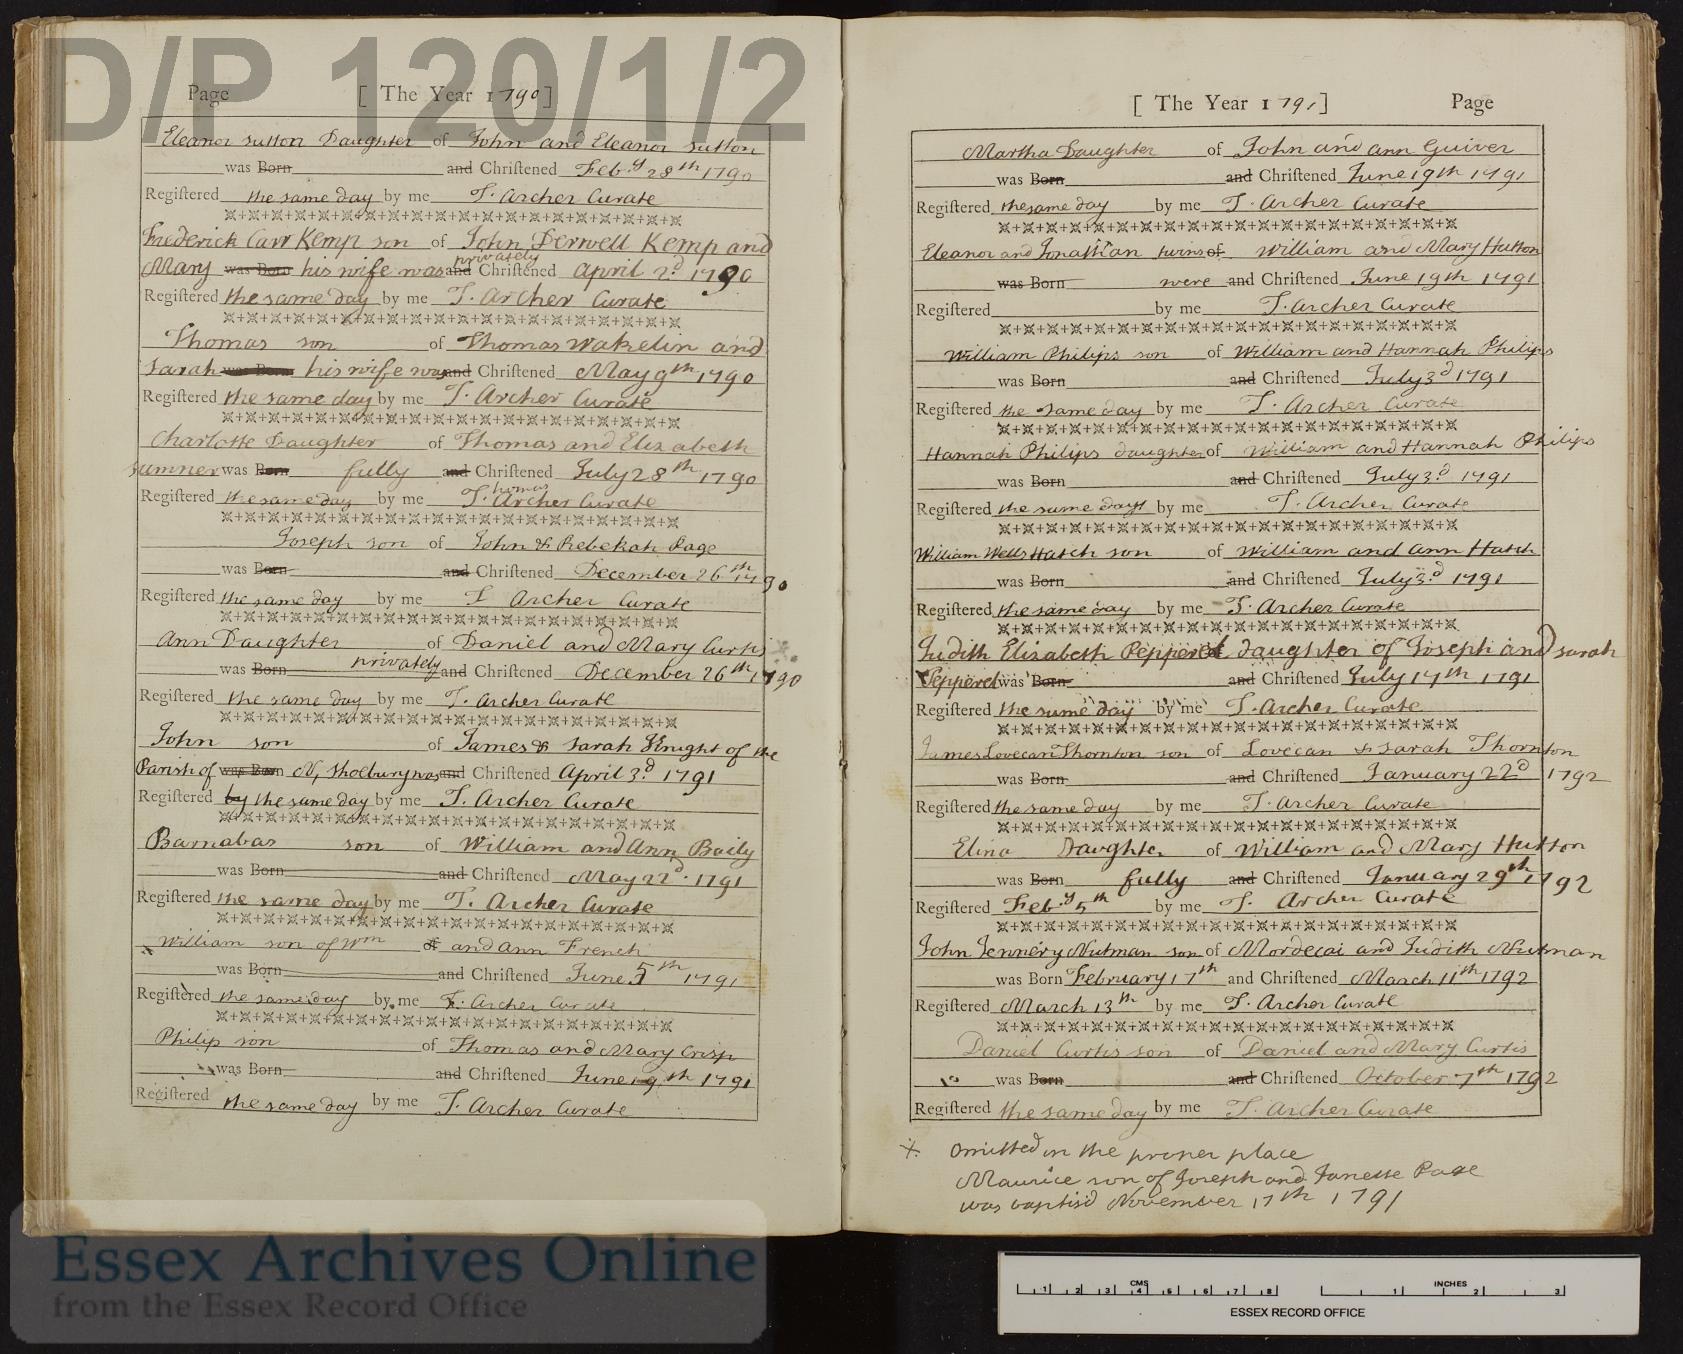 D/P 120/1/2
Page [ The Year 1790 ]
Eleanor Sutton Daughter of John and Eleanor Sutton
was Born and Chriſtened Feb.y 28th 1790
Regiſtered the same day by me T. Archer Curate
Frederick Carr Kemp son of John Derwell Kemp and
Mary was Born his wife was privately and Chriſtened April 2d. 1790
Regiſtered the same day by me T. Archer Curate
Thomas son of Thomas Wakelin and
Sarah was Born his wife was and Chriſtened May 9th 1790
Regiſtered the same day by me T. Archer Curate
Charlotte Daughter of Thomas and Elizabeth
Sumner was Born fully and Chriſtened July 28th 1790
Regiſtered the same day by me T.homas Archer Curate
Joseph son of John & Rebekah Page
was Born and Chriſtened December 26th 1790
Regiſtered the same day by me T Archer Curate
Ann Daughter of Daniel and Mary Curtis
was Born privately and Chriſtened December 26th 1790
Regiſtered the same day by me T. Archer Curate
John son of James & Sarah Knight of the
Parish of was Born N, Shoebury was and Chriſtened April 3d 1791
Regiſtered by the same day by me T. Archer Curate
Barnabas son of William and Ann Baily
was Born and Chriſtened May 22d. 1791
Regiſtered the same day by me T. Archer Curate
William son of Wm of and Ann French
was Born and Chriſtened June 5th 1791
Regiſtered the same day by me T. Archer Curate
Philip son of Thomas and Mary Crisp
was Born and Chriſtened June 19th 1791
Regiſtered the same day by me T. Archer Curate
[ The Year 1791 ] Page
Martha Daughter of John and Ann Guiver
was Born and Chriſtened June 19th 1791
Regiſtered the same day by me T. Archer Curate
Eleanor and Jonathan twins of William and Mary Hutton
was Born were and Chriſtened June 19th 1791
Regiſtered by me T. Archer Curate
William Philips son of William and Hannah Philips
was Born and Chriſtened July 3d 1791
Regiſtered the same day by me T. Archer Curate
Hannah Philips daughter of William and Hannah Philips
was Born and Chriſtened July 3d. 1791
Regiſtered the same day by me T. Archer Curate
William Wells Hatch son of William and Ann Hatch
was Born and Chriſtened July 3d. 1791
Regiſtered the same day by me T. Archer Curate
Judith Elizabeth Pepperel daughter of Joseph and Sarah
Pepperel was Born and Chriſtened July 17th 1791
Regiſtered the same day by me T. Archer Curate
James Lovecan Thornton son of Lovecan & Sarah Thornton
was Born and Chriſtened January 22d 1792
Regiſtered the same day by me T. Archer Curate
Elina Daughter of William and Mary Hutton
was Born fully and Chriſtened January 29th 1792
Regiſtered Feb.y 5th by me T. Archer Curate
John Jennery Nutman son of Mordecai and Judith Nutman
was Born February 17th and Chriſtened March 11th 1792
Regiſtered March 13th by me T. Archer Curate
Daniel Curtis son of Daniel and Mary Curtis
was Born and Chriſtened October 7th 1792
Regiſtered the same day by me T. Archer Curate
omitted in the proper place
Maurice son of Joseph and Janette Page
was baptis'd November 17th 1791
Essex Archives Online
from the Essex Record Office
CMS 1 2 3 4 5 6 7 8
INCHES 1 2 3
ESSEX RECORD OFFICE